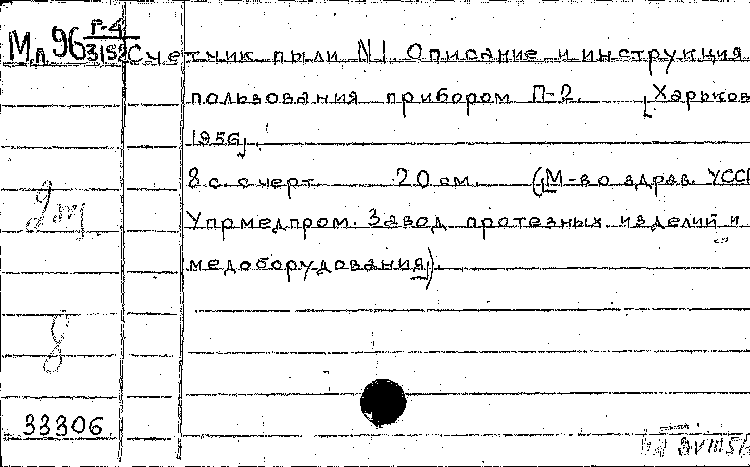 Мл 96 Г-4
3152 Счетчик пыли N1. Описание и инструкция
пользования прибором П-2. [Харьков
1956].
8 с. с черт. 20 см. ([М-во здрав. УССР
Упрмедпром. Завод протезных изделий и
медоборудования]).
2 эт
8
33306